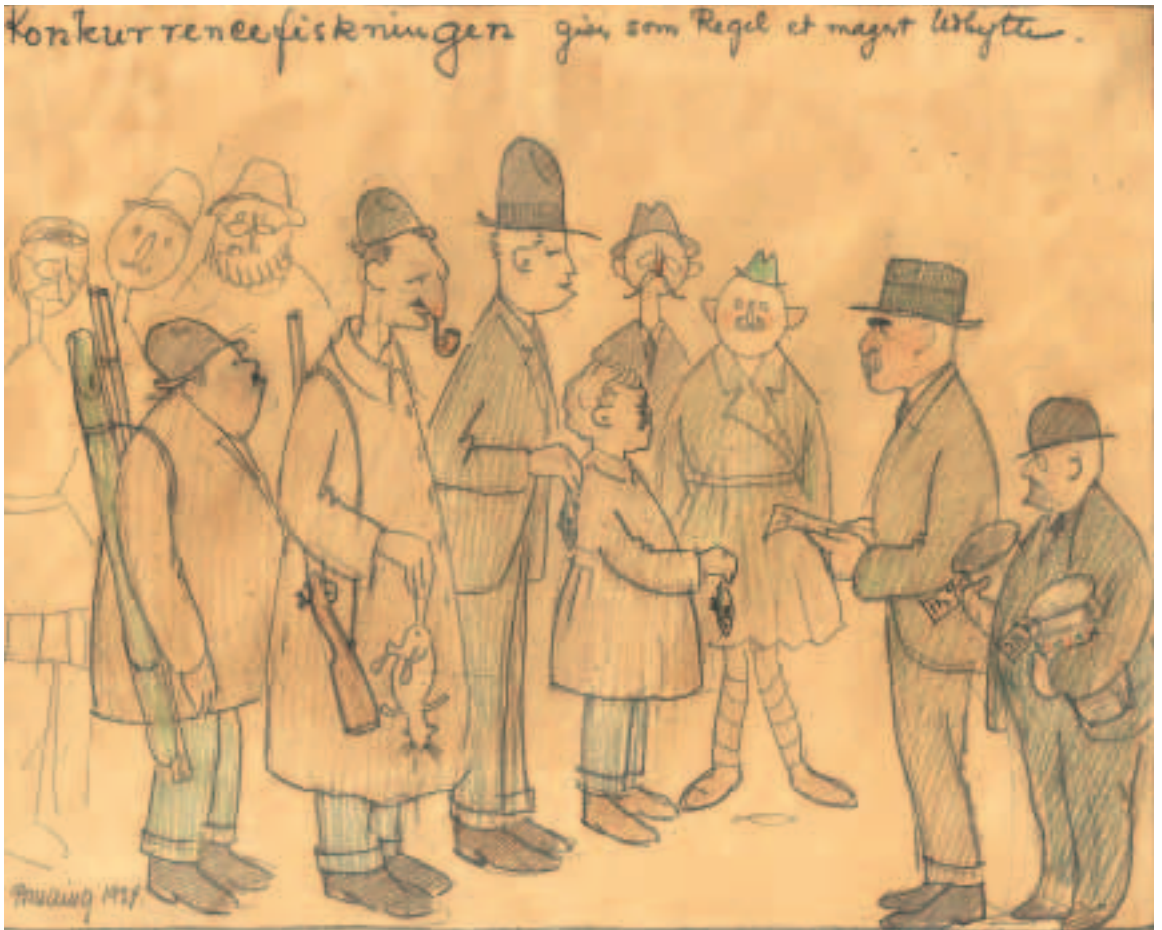 Konkurrencefiskningen giver som Regel et magert Udbytte.
1929